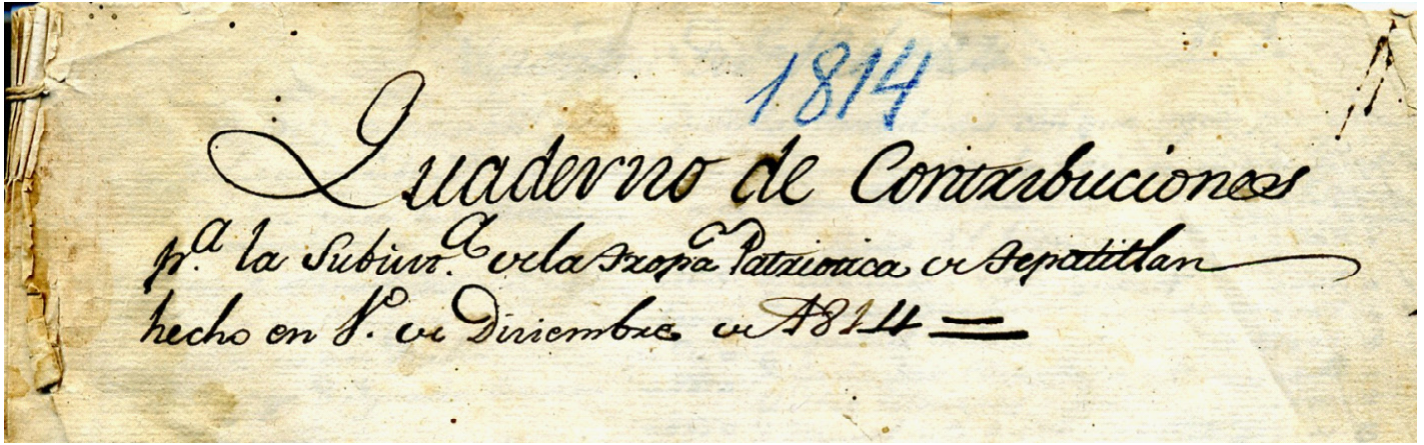 1814
Quaderno de Contribuciones
pª. la Subsistª. de la tropa Patriotica de Tepatitlan
hecho en 1º. de Diciembre de 1814